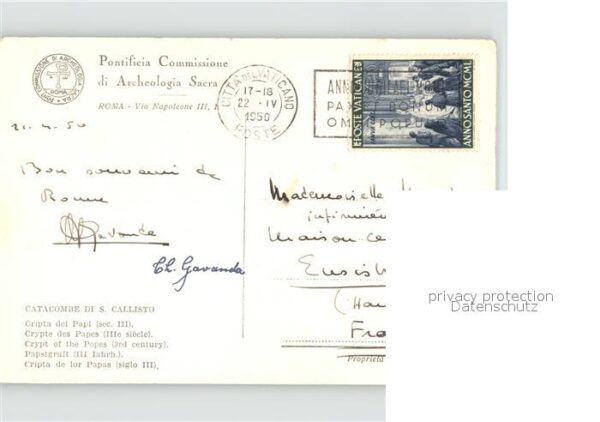 Pontificia Commissione
di Archeologia Sacra
ROMA - Via Napoleone III, 1
PONT. COMMISSIONE DI ARCHEOLOGIA SACRA
ROMA
21.4.50
Bon souvenir de
Rome
Gavanda
Ch. Gavanda
CATACOMBE DI S. CALLISTO
Cripta dei Papi (sec. III).
Crypte des Papes (IIIe siècle).
Crypt of the Popes (3rd century).
Papstgruft (III Jahrh.).
Cripta de lor Papas (siglo III)
CITTÀ DEL VATICANO
17-18
22 · IV
1950
POSTE
POSTE VATICANE
ANNO SANTO MCML
Mademoiselle
infirmière
Maison ce
Ensish
(Hau
Fra
Proprietà
privacy protection
Datenschutz